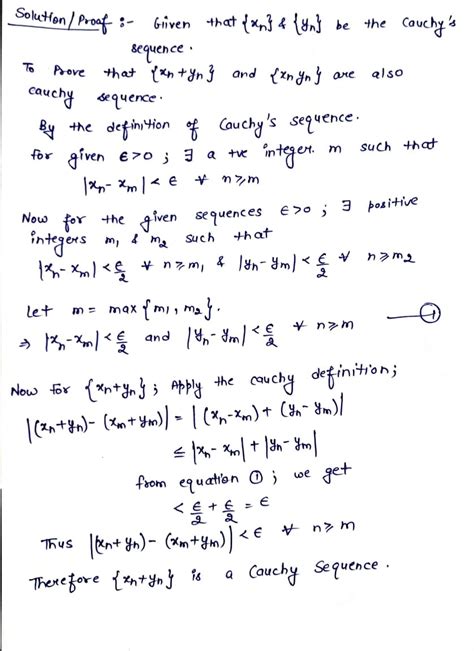 Solution/Proof :- Given that {xn} & {yn} be the Cauchy's
sequence.
To Prove that {xn+yn} and {xnyn} are also
cauchy sequence.
By the definition of Cauchy's sequence.
for given ε>0 ; ∃ a +ve integer. m such that
|xn - xm| < ε ∀ n≥m
Now for the given sequences ε>0 ; ∃ positive
integers m₁ & m₂ such that
|xn-xm| < ε/2 ∀ n≥m₁ & |yn-ym| < ε/2 ∀ n≥m₂
Let m = max {m₁, m₂}.
⇒ |xn-xm| < ε/2 and |yn-ym| < ε/2 ∀ n≥m —①
Now for {xn+yn} ; Apply the cauchy definition;
|(xn+yn) - (xm+ym)| = |(xn-xm) + (yn-ym)|
≤ |xn-xm| + |yn-ym|
from equation ① ; we get
< ε/2 + ε/2 = ε
Thus |(xn+yn) - (xm+ym)| < ε ∀ n≥m
Therefore {xn+yn} is a Cauchy Sequence.